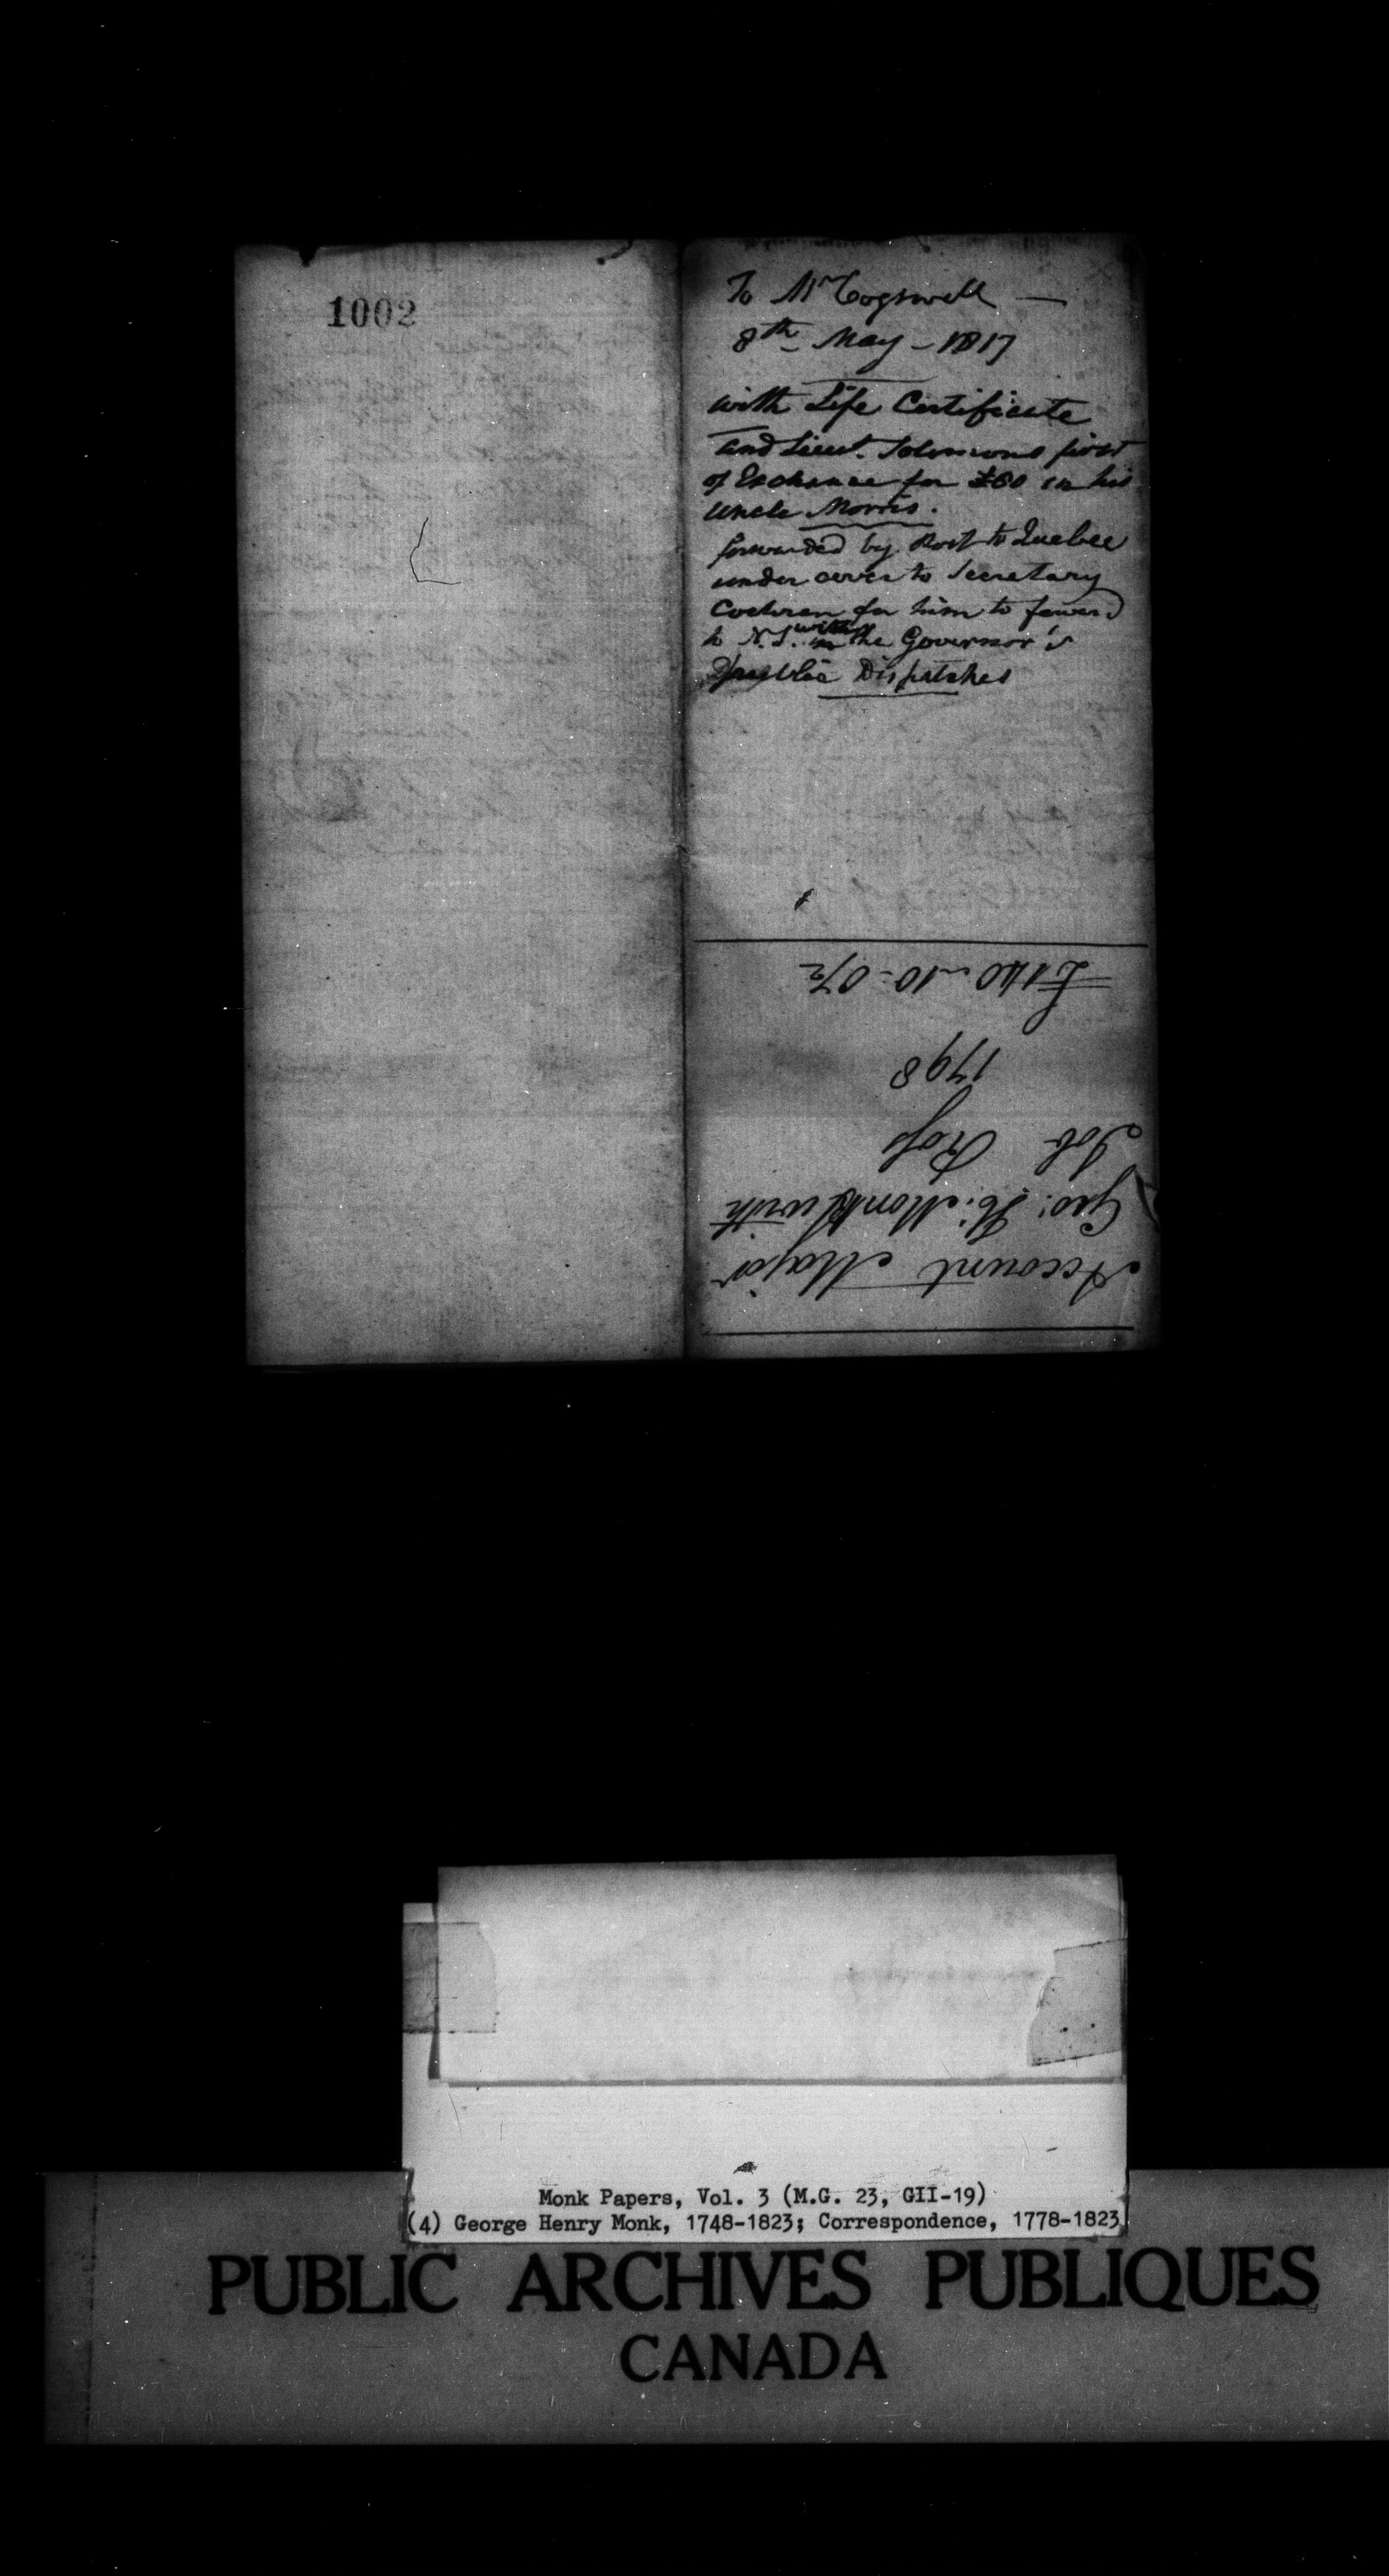 1002
To Mr Cogswell —
8th May - 1817
with Life Certificate
and Lieut. Solomons first
of Exchange for £60 on his
uncle Morris.
forwarded by Post to Quebec
under cover to Secretary
Cochran for him to forward
to N.S. with the Governor's
Public Dispatches
Account Major
Geo: H: Monk with
Job Ross
1798
£140 - 10 - 0 1/2
Monk Papers, Vol. 3 (M.G. 23, GII-19)
(4) George Henry Monk, 1748-1823; Correspondence, 1778-1823
PUBLIC ARCHIVES PUBLIQUES
CANADA